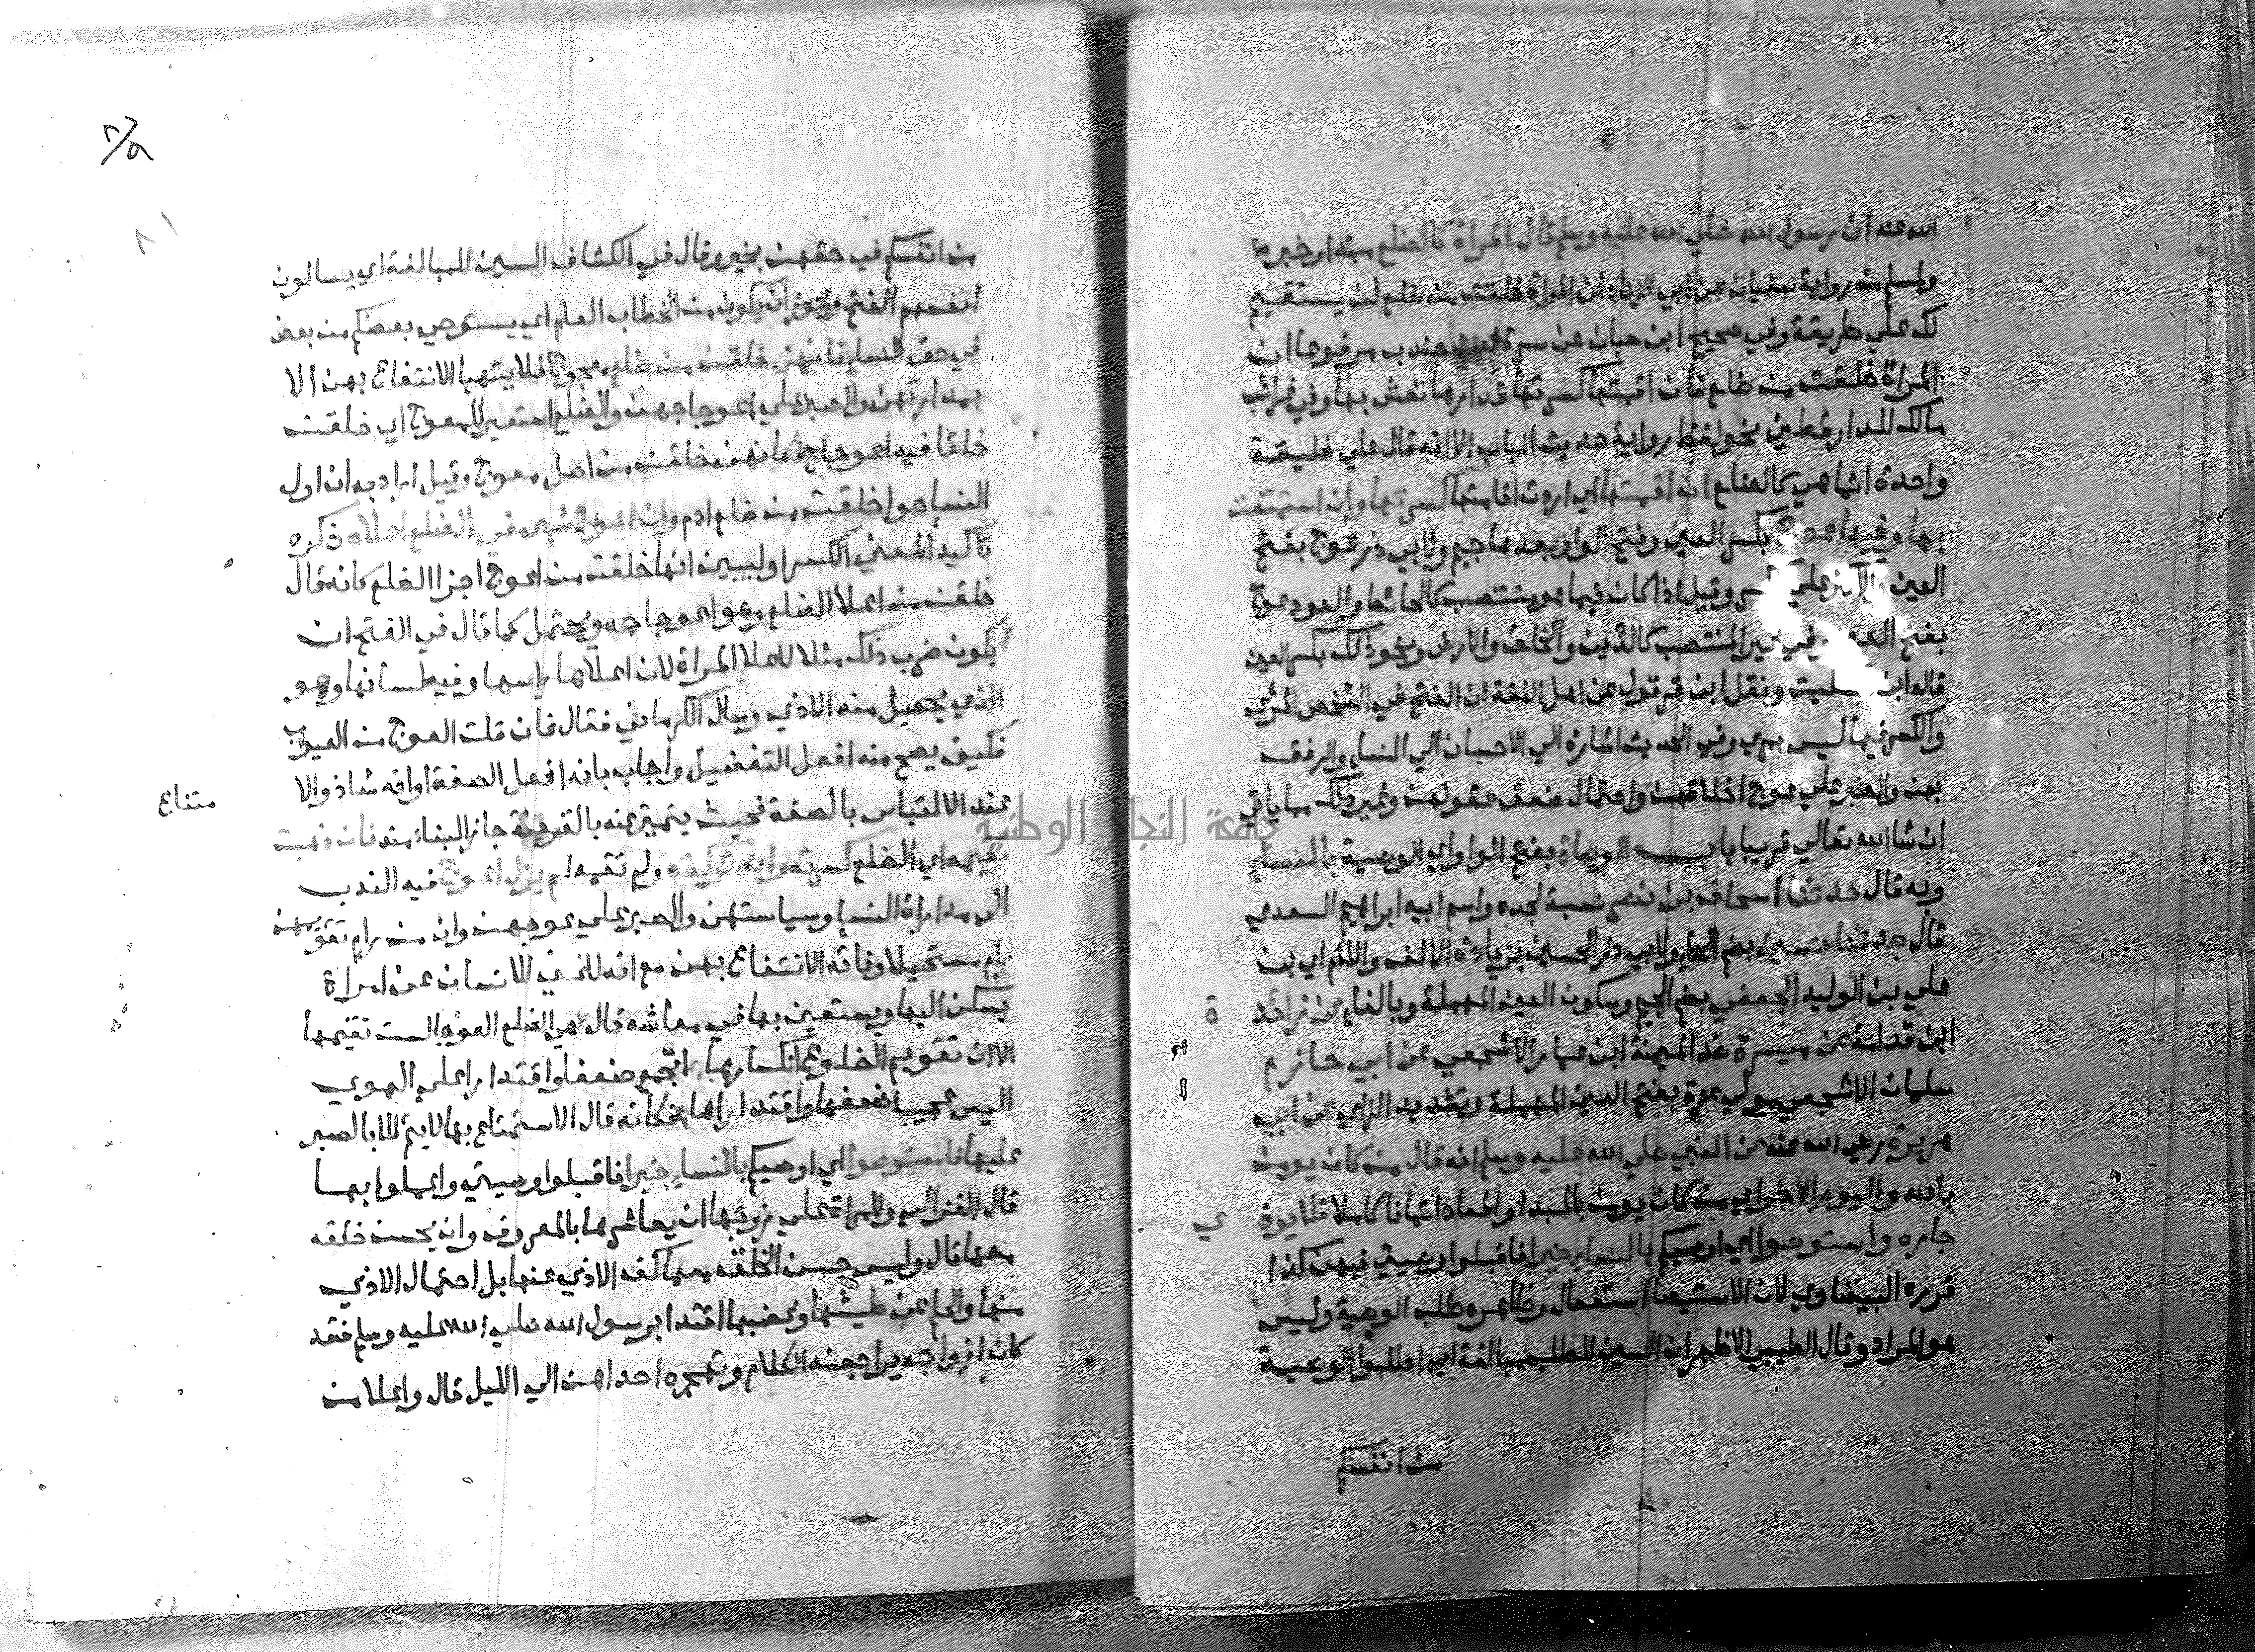 الله عنه ان رسول الله صلي الله عليه وسلم قال المراة كالضلع مبتدا وخبره
ولمسلم من رواية سفيان عن ابي الزناد ان المراة خلقت من ضلع لن يستقيم
لك علي طريقة وفي صحيح ابن حبان عن سمرة بن جندب مرفوعا ان
المراة خلقت من ضلع فان اقمتها كسرتها فدارها تعش بها وفي غرائب
مالك للدارقطني نحو لفظ رواية حديث الباب الا انه قال علي خليقة
واحدة انما هي كالضلع ان اقمتها اي اردت اقامتها كسرتها وان استمتعت
بها وفيها عوج بكسر العين وفتح الواو بعدها جيم ولابي ذر عوج بفتح
العين والاكثر علي الكسر وقيل اذا كان فيما هو منتصب كالحائط والعود عوج
بفتح العين وفي غير المنتصب كالدين والخلق والارض ونحو ذلك بكسر العين
قاله ابن السكيت ونقل ابن قرقول عن اهل اللغة ان الفتح في الشخص المرئي
والكسر فيما ليس بمرئي وفي الحديث اشارة الي الاحسان الي النساء والرفق
بهن والصبر علي عوج اخلاقهن واحتمال ضعف عقولهن وغير ذلك مما ياتي
ان شا الله تعالي قريبا باب الوصاة بفتح الواو اي الوصية بالنساء
وبه قال حدثنا اسحاق بن نصر نسبة لجده واسم ابيه ابراهيم السعدي
قال حدثنا حسين بضم الحاء ولابي ذر الحسين بزيادة الالف واللام اي بن
علي بن الوليد الجعفي بضم الجيم وسكون العين المهملة وبالفاء عن زائدة
ابن قدامة عن ميسرة ضد الميمنة ابن عمار الاشجعي عن ابي حازم
سلمان الاشجعي مولي عزة بفتح العين المهملة وتشديد الزاي عن ابي
هريرة رضي الله عنه عن النبي صلي الله عليه وسلم انه قال من كان يومن
بالله واليوم الاخر اي من كان يومن بالمبدا والمعاد ايمانا كاملا فلا يوذي
جاره واستوصوا اي اوصيكم بالنساء خيرا فاقبلوا وصيتي فيهن كذا
قرره البيضاوي لان الاستيصا استفعال وظاهره طلب الوصية وليس
هو المراد وقال الطيبي الاظهر ان السين للطلب مبالغة اي اطلبوا الوصية
من انفسكم
من انفسكم في حقهن بخير وقال في الكشاف السين للمبالغة اي يسالون
انفسهم الفتح ويجوز ان يكون من الخطاب العام اي يستوصي بعضكم من بعض
في حق النساء فانهن خلقن من ضلع معوج فلا يتهيا الانتفاع بهن الا
بمداراتهن والصبر علي اعوجاجهن والضلع استعير للمعوج اي خلقت
خلقا فيه اعوجاج فكانهن خلقن من اصل معوج وقيل اراد به ان اول
النسا حوا خلقت من ضلع ادم وان اعوج شي في الضلع اعلاه ذكره
تاكيد المعني الكسر او ليبين انها خلقت من اعوج اجزا الضلع كانه قال
خلقن من اعلا الضلع وهو اعوجاجه ويحتمل كما قال في الفتح ان
يكون ضرب ذلك مثلا لاعلا المراة لان اعلاها راسها وفيه لسانها وهو
الذي يحصل منه الاذي وسال الكرماني فقال فان قلت العوج من العيوب
فكيف يصح منه افعل التفضيل واجاب بانه افعل الصفة او انه شاذ والا
متناع
عند الالتباس بالصفة فحيث يتميز عنه بالقرينة جاز البناء منه فان ذهبت
تقيمه اي الضلع كسرته وان تركته ولم تقمه لم يزل اعوج فيه الندب
الي مداراة النساء وسياستهن والصبر علي عوجهن وان من رام تقويمهن
رام مستحيلا وفاته الانتفاع بهن مع انه لا غني للانسان عن امراة
يسكن اليها ويستعين بها في معاشه قال هي الضلع العوجا لست تقيمها
الا ان تقويم الضلوع انكسارها اتجمع ضعفا واقتدارا علي الهوي
اليس عجيبا ضعفها واقتدارها فكانه قال الاستمتاع بها لا يتم الا بالصبر
عليها فاستوصوا اي اوصيكم بالنساء خيرا فاقبلوا وصيتي واعملوا بها
قال الغزالي وللمراة علي زوجها ان يعاشرها بالمعروف وان يحسن خلقه
معها قال وليس حسن الخلق معها كف الاذي عنها بل احتمال الاذي
منها والحلم عن طيشها وغضبها اقتدا برسول الله صلي الله عليه وسلم فقد
كان ازواجه يراجعنه الكلام وتهجره احداهن الي الليل قال واعلا من
جامعة النجاح الوطنية